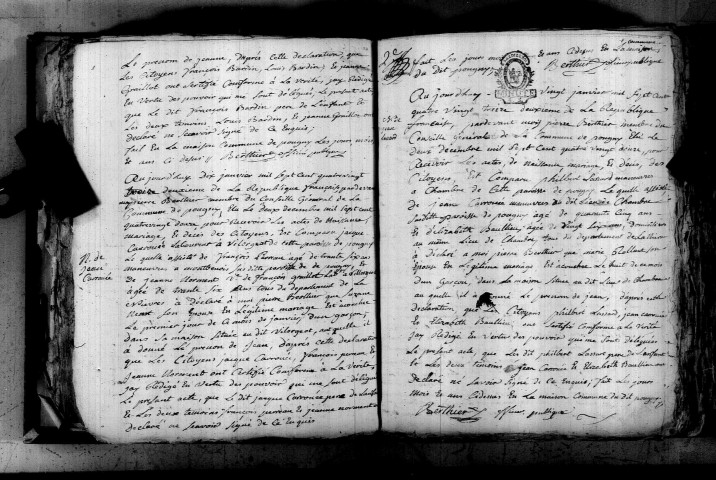 Le prenom de jeanne, d'aprés cette declaration, que
Les Citoyens françois Bardin, Louis Bardin, Et jeanne
Graillot ont Certifié Conforme a La Verité, jay Redigé
En Vertu des pouvoir qui me sont délégués, Le présent acte
que Le dit françois Bardin pere de L'enfant Et
Les deux temoins Louis Bardin, Et jeanne Graillot ont
declaré ne Scavoir Signé de Ce Enquis;
fait En La maison Commune de pougny Les jour, mois
Et an Ci dessus Berthier officier publique
Aujourd'huy dix janvier mil sept cent quatre vingt
treize deuxieme de La République française pardevant
moy pierre Berthier membre du Conseille General de La
Commune de pougny, Elu Le deux decembre mil sept cent
quatre vingt douze pour Recevoir Les actes de Naissance,
mariage, Et déces des Citoyens, Est Comparu jacque
Carroué Laboureur a Villorget de cette paroisse de pougny
Le quelle assisté de françois perreau agé de trente six ans
manoeuvre a montbenoit susditte paroisse de pougny, Et
de jeanne Normant de françois graillot
agée de trente six ans tous du departement de La
Nievre a Déclaré a moy pierre Berthier que
son Epoux En Legitime mariage Est accouché
Le premier jour de Ce mois de janvier, d'un garçon,
dans sa maison Située au dit Villorget, au quelle il
a donné Le prenom de jean, d'aprés cette declaration
que Les Citoyens jacque Carroué, françois perreau Et
jeanne Normant ont Certifié Conforme a La Verité,
jay Redigé En Vertu des pouvoir qui me sont délégués
Le présent acte, que Le dit jacque Carroué pere de L'enfant
Et Les deux temoins françois perreau et jeanne normant ont
declaré ne Scavoir Signé de Ce Enquis
N. de
jean
Carroué
fait Les jours mois Et an Cidessus En La maison commune
du dit pougny Berthier officier publique
Aujourd'huy vingt janvier mil sept Cent
quatre Vingt treize deuxieme de La République
française, pardevant moy pierre Berthier membre du
Conseille General de La Commune de pougny Elu Le
deux decembre mil sept Cent quatre Vingt douze pour
Recevoir Les actes de Naissance, mariage, Et déces, des
Citoyens, Est Comparu philbert manoeuvre
a Chambre de Cette paroisse de pougny Le quelle assisté
de jean Carroué manoeuvre au dit Lieu de Chambre
Susdite paroisse de pougny agé de quarante Cinq ans
Et d'Elizabeth Baullieu agée de vingt ans, demeurant
au même Lieu de Chambre tous du departement de La Nievre
a déclaré a moi pierre Berthier que marie son
Epouse En Legitime mariage Est accouché Le huit de ce mois
d'un Garçon, dans sa maison Située au dit Lieu de Chambre
au quelle il a donné Le prenom de jean, d'aprés cette
declaration que Les Citoyens philbert jean carroué
Et Elizabeth Baullieu ont Certifié Conforme a La Verité
jay Redigé En Vertu des pouvoir qui me sont Délégués
Le présent acte, que Les dit philbert pere de L'enfant
Et Les deux temoins jean Carroué et Elizabeth Baullieu ont
declaré ne Scavoir Signé de Ce Enquis, fait Les jours
mois Et an Cidessus En La maison Commune du dit pougny
Berthier officier publique
N. de
jean